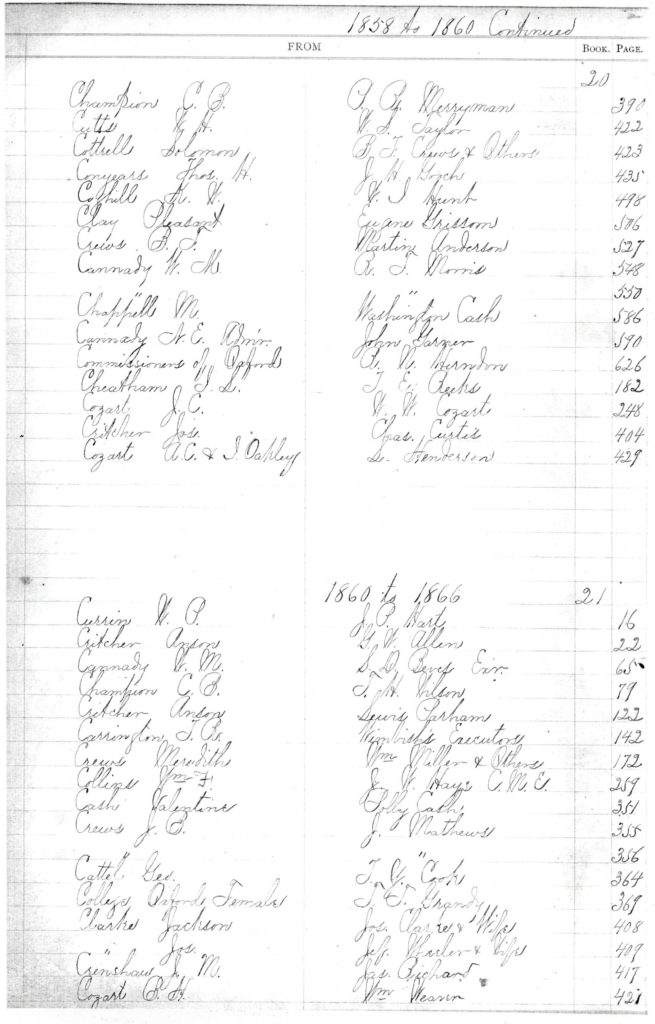 1858 to 1860 Continued
FROM BOOK. PAGE.
20
Champion C. B. P. B. Merryman 390
Cutts W. H. W. S. Taylor 422
Cottrell Solomon B. F. Crews & Others 423
Conyears Thos. H. J. H. Gooch 435
Cothill W. W. I Hunt 498
Clay Pleasant Eugene Grissom 506
Crews B. F. Martin Anderson 527
Cannady W. M R. T. Morris 548
" " 550
Chappell M. Washington Cash 586
Cannady N. E. Adm'r. John Garner 590
Commissioners of Oxford R. W. Herndon 626
Cheatham T. L. T. E. Reeks 182
Cozart J. C. W. W. Cozart 248
Critcher Jos. Chas. Curtis 404
Cozart A. C. & I Oakley L. Henderson 429
1860 to 1866 21
Currin W. P. J. P. Hart 16
Critcher Anson G. W. Allen 22
Cannady W. M. S. D. Exr. 65
Champion C. B. T. H. Wilson 79
Critcher Anson Lewis Parham 122
Carrington J. R. Wimbish's Executors 142
Crews Meredith Wm Miller & Others 172
Collins Wm F. J. W. Hays C. M. E. 259
Cash Valentine Polly Cash 351
Crews J. B. J. Mathews 355
" " 356
Cattel Geo. T. Y. Cook 364
College Oxford Female T. T. Grandy 369
Clarke Jackson Jos. Clarke & Wife 408
" Jos. Jef. Wheeler & Wife 409
Crenshaw J. M. Jas. Richard 417
Cozart B. H. Wm Weaver 421